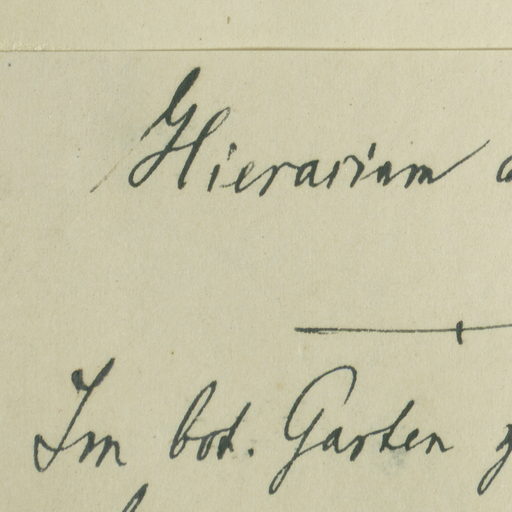 Hieracium
Im bot. Garten